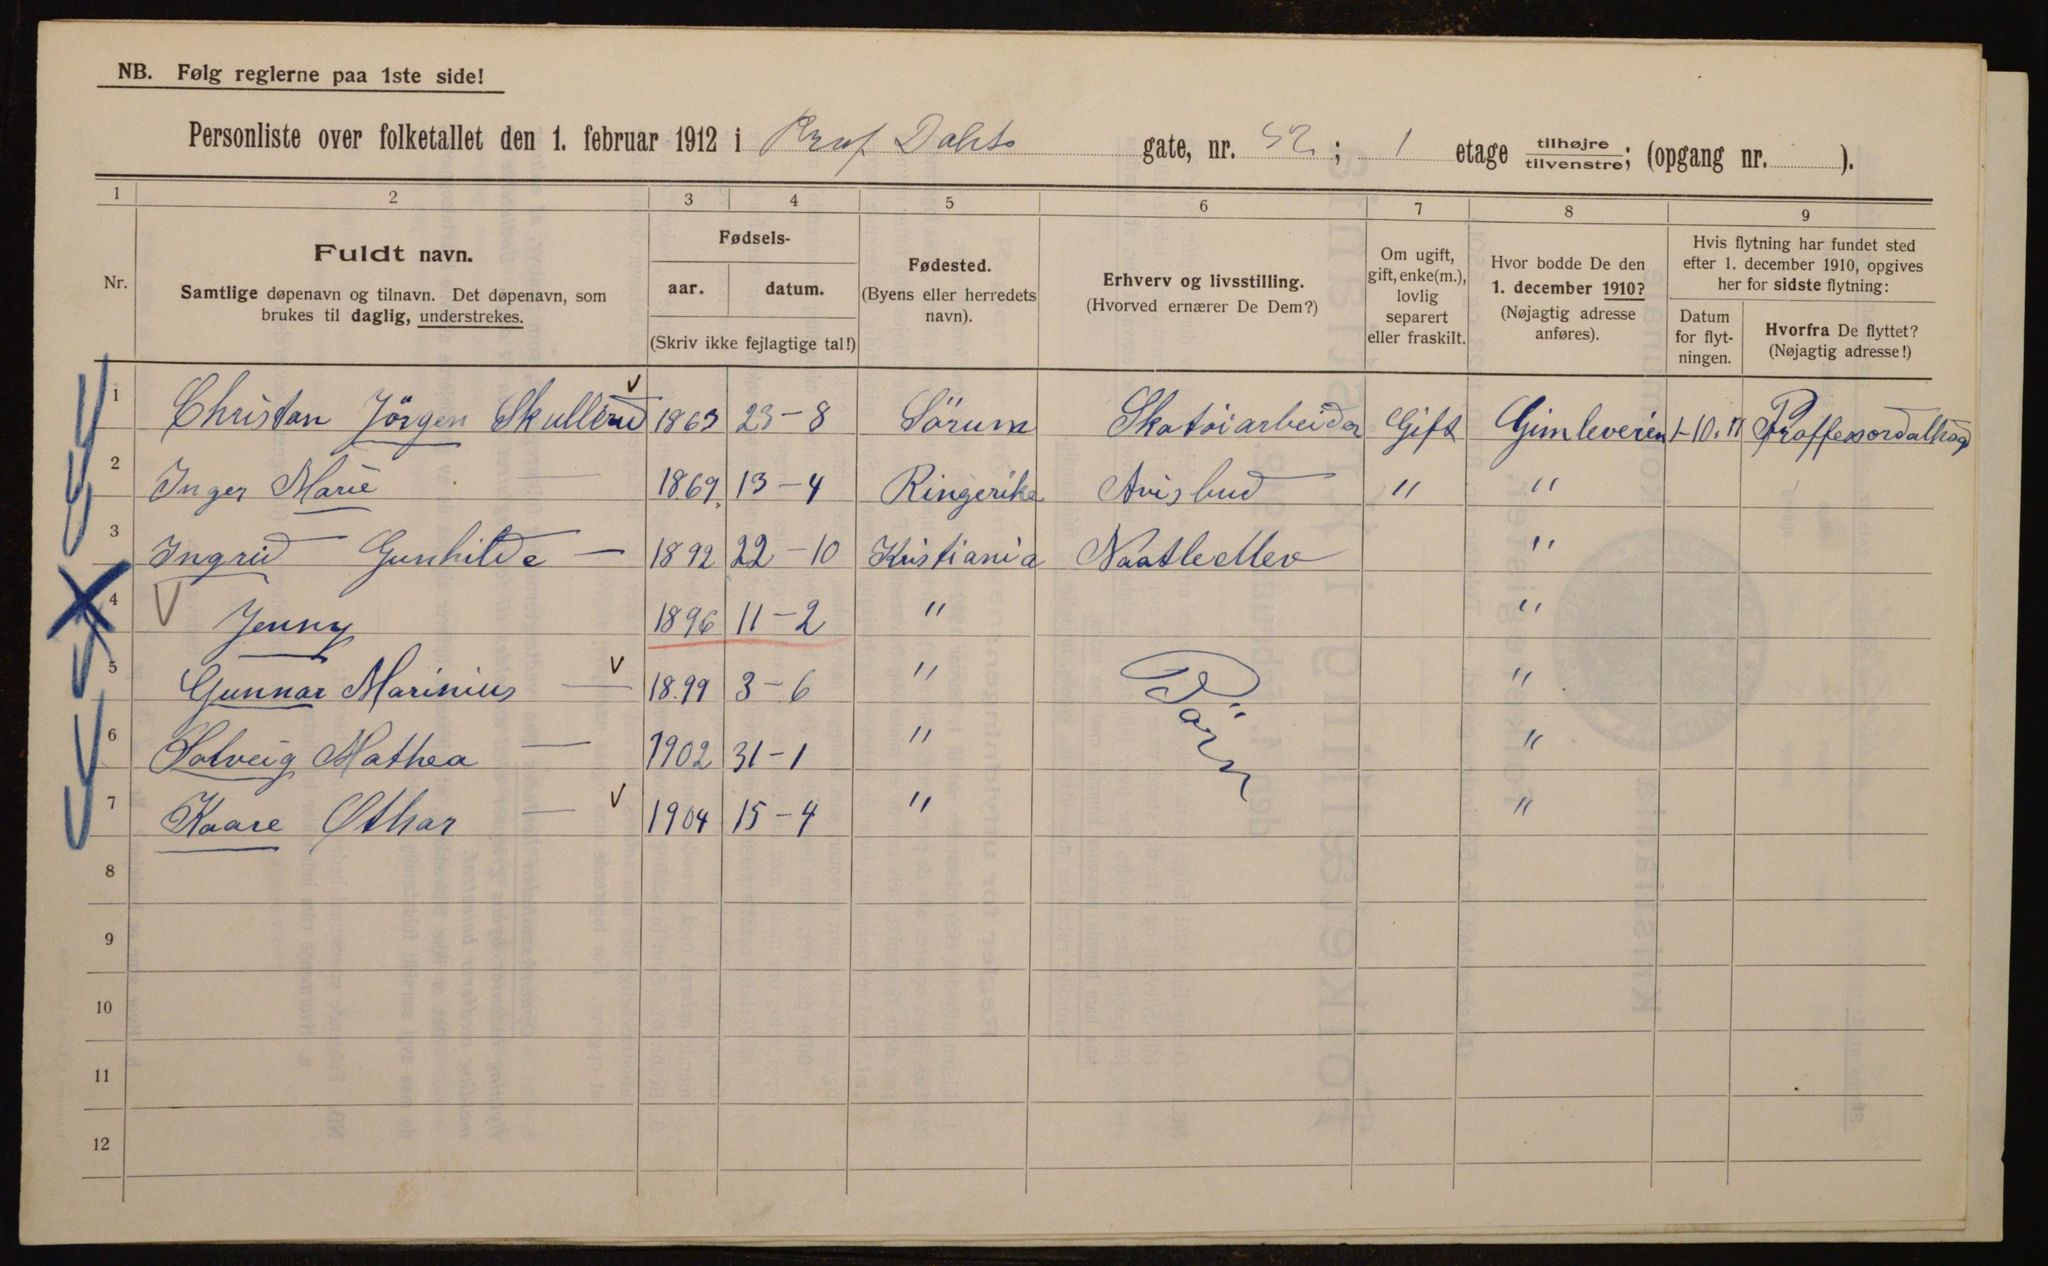 NB. Følg reglerne paa 1ste side!
Personliste over folketallet den 1. februar 1912 i Prof Dahls gate, nr. 52; 1 etage tilhøjre/tilvenstre; (opgang nr. ).
1 2 3 4 5 6 7 8 9
Nr.
Fuldt navn.
Samtlige døpenavn og tilnavn. Det døpenavn, som
brukes til daglig, understrekes.
Fødsels-
aar. datum.
(Skriv ikke fejlagtige tal!)
Fødested.
(Byens eller herredets
navn).
Erhverv og livsstilling.
(Hvorved ernærer De Dem?)
Om ugift,
gift, enke(m.),
lovlig
separert
eller fraskilt.
Hvor bodde De den
1. december 1910?
(Nøjagtig adresse
anføres).
Hvis flytning har fundet sted
efter 1. december 1910, opgives
her for sidste flytning:
Datum
for flyt-
ningen.
Hvorfra De flyttet?
(Nøjagtig adresse!)
1 Christan Jörgen Skullerud 1863 23-8 Sörum Skotöiarbeider Gift Gimleveien 1-10.11
2 Inger Marie 1869 13-4 Ringerike Avisbud " "
3 Ingrid Gunhilde — 1892 22-10 Kristiania "
4 Jenny 1896 11-2 " "
5 Gunnar Marinius — 1899 3-6 " Börn "
6 Solveig Mathea — 1902 31-1 " "
7 Kaare Othar — 1904 15-4 " "
8
9
10
11
12